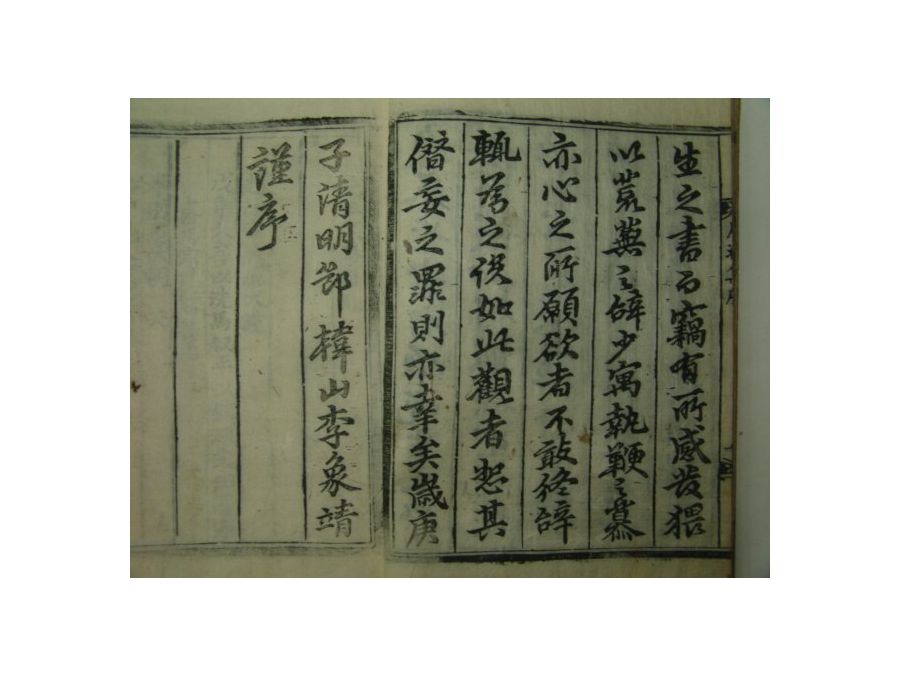 生之書而竊有所感發猥
以荒蕪之辭少寓執鞭之慕
亦心之所願欲者不敢終辭
輒爲之說如此觀者恕其
僭妄之罪則亦幸矣歲庚
子清明節韓山李象靖
謹序